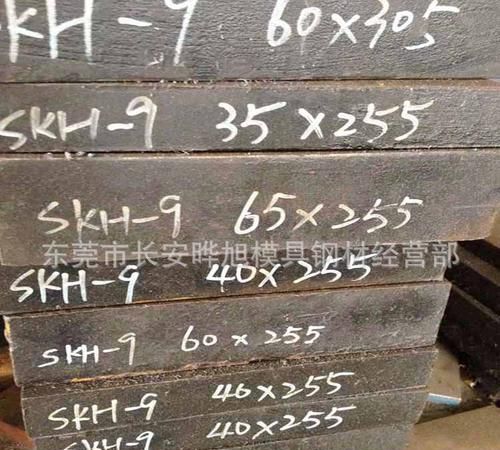 SKH-9 60x305
SKH-9 35x255
SKH-9 65x255
东莞市长安晔旭模具钢材经营部
SKH-9 40x255
SKH-9 60x255
SKH-9 40x255
SKH-9 40x255